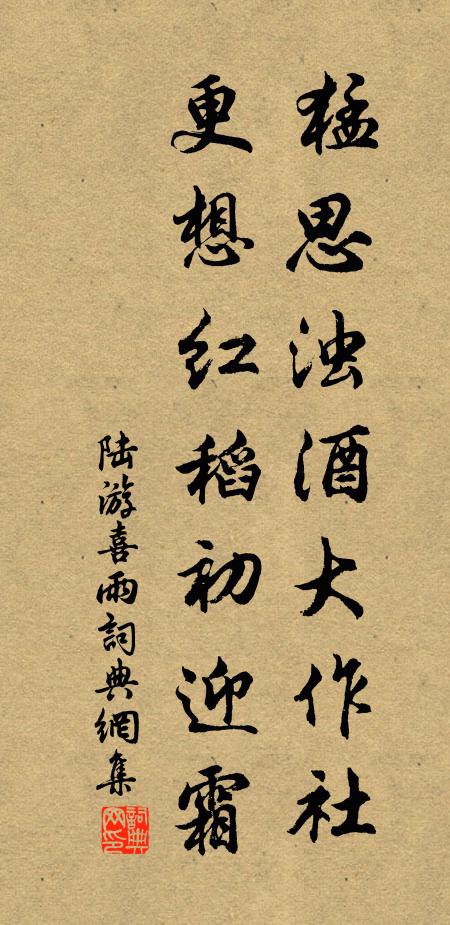 猛思浊酒大作社
更想红稻初迎霜
陆游喜雨詞典網集
詞典网印